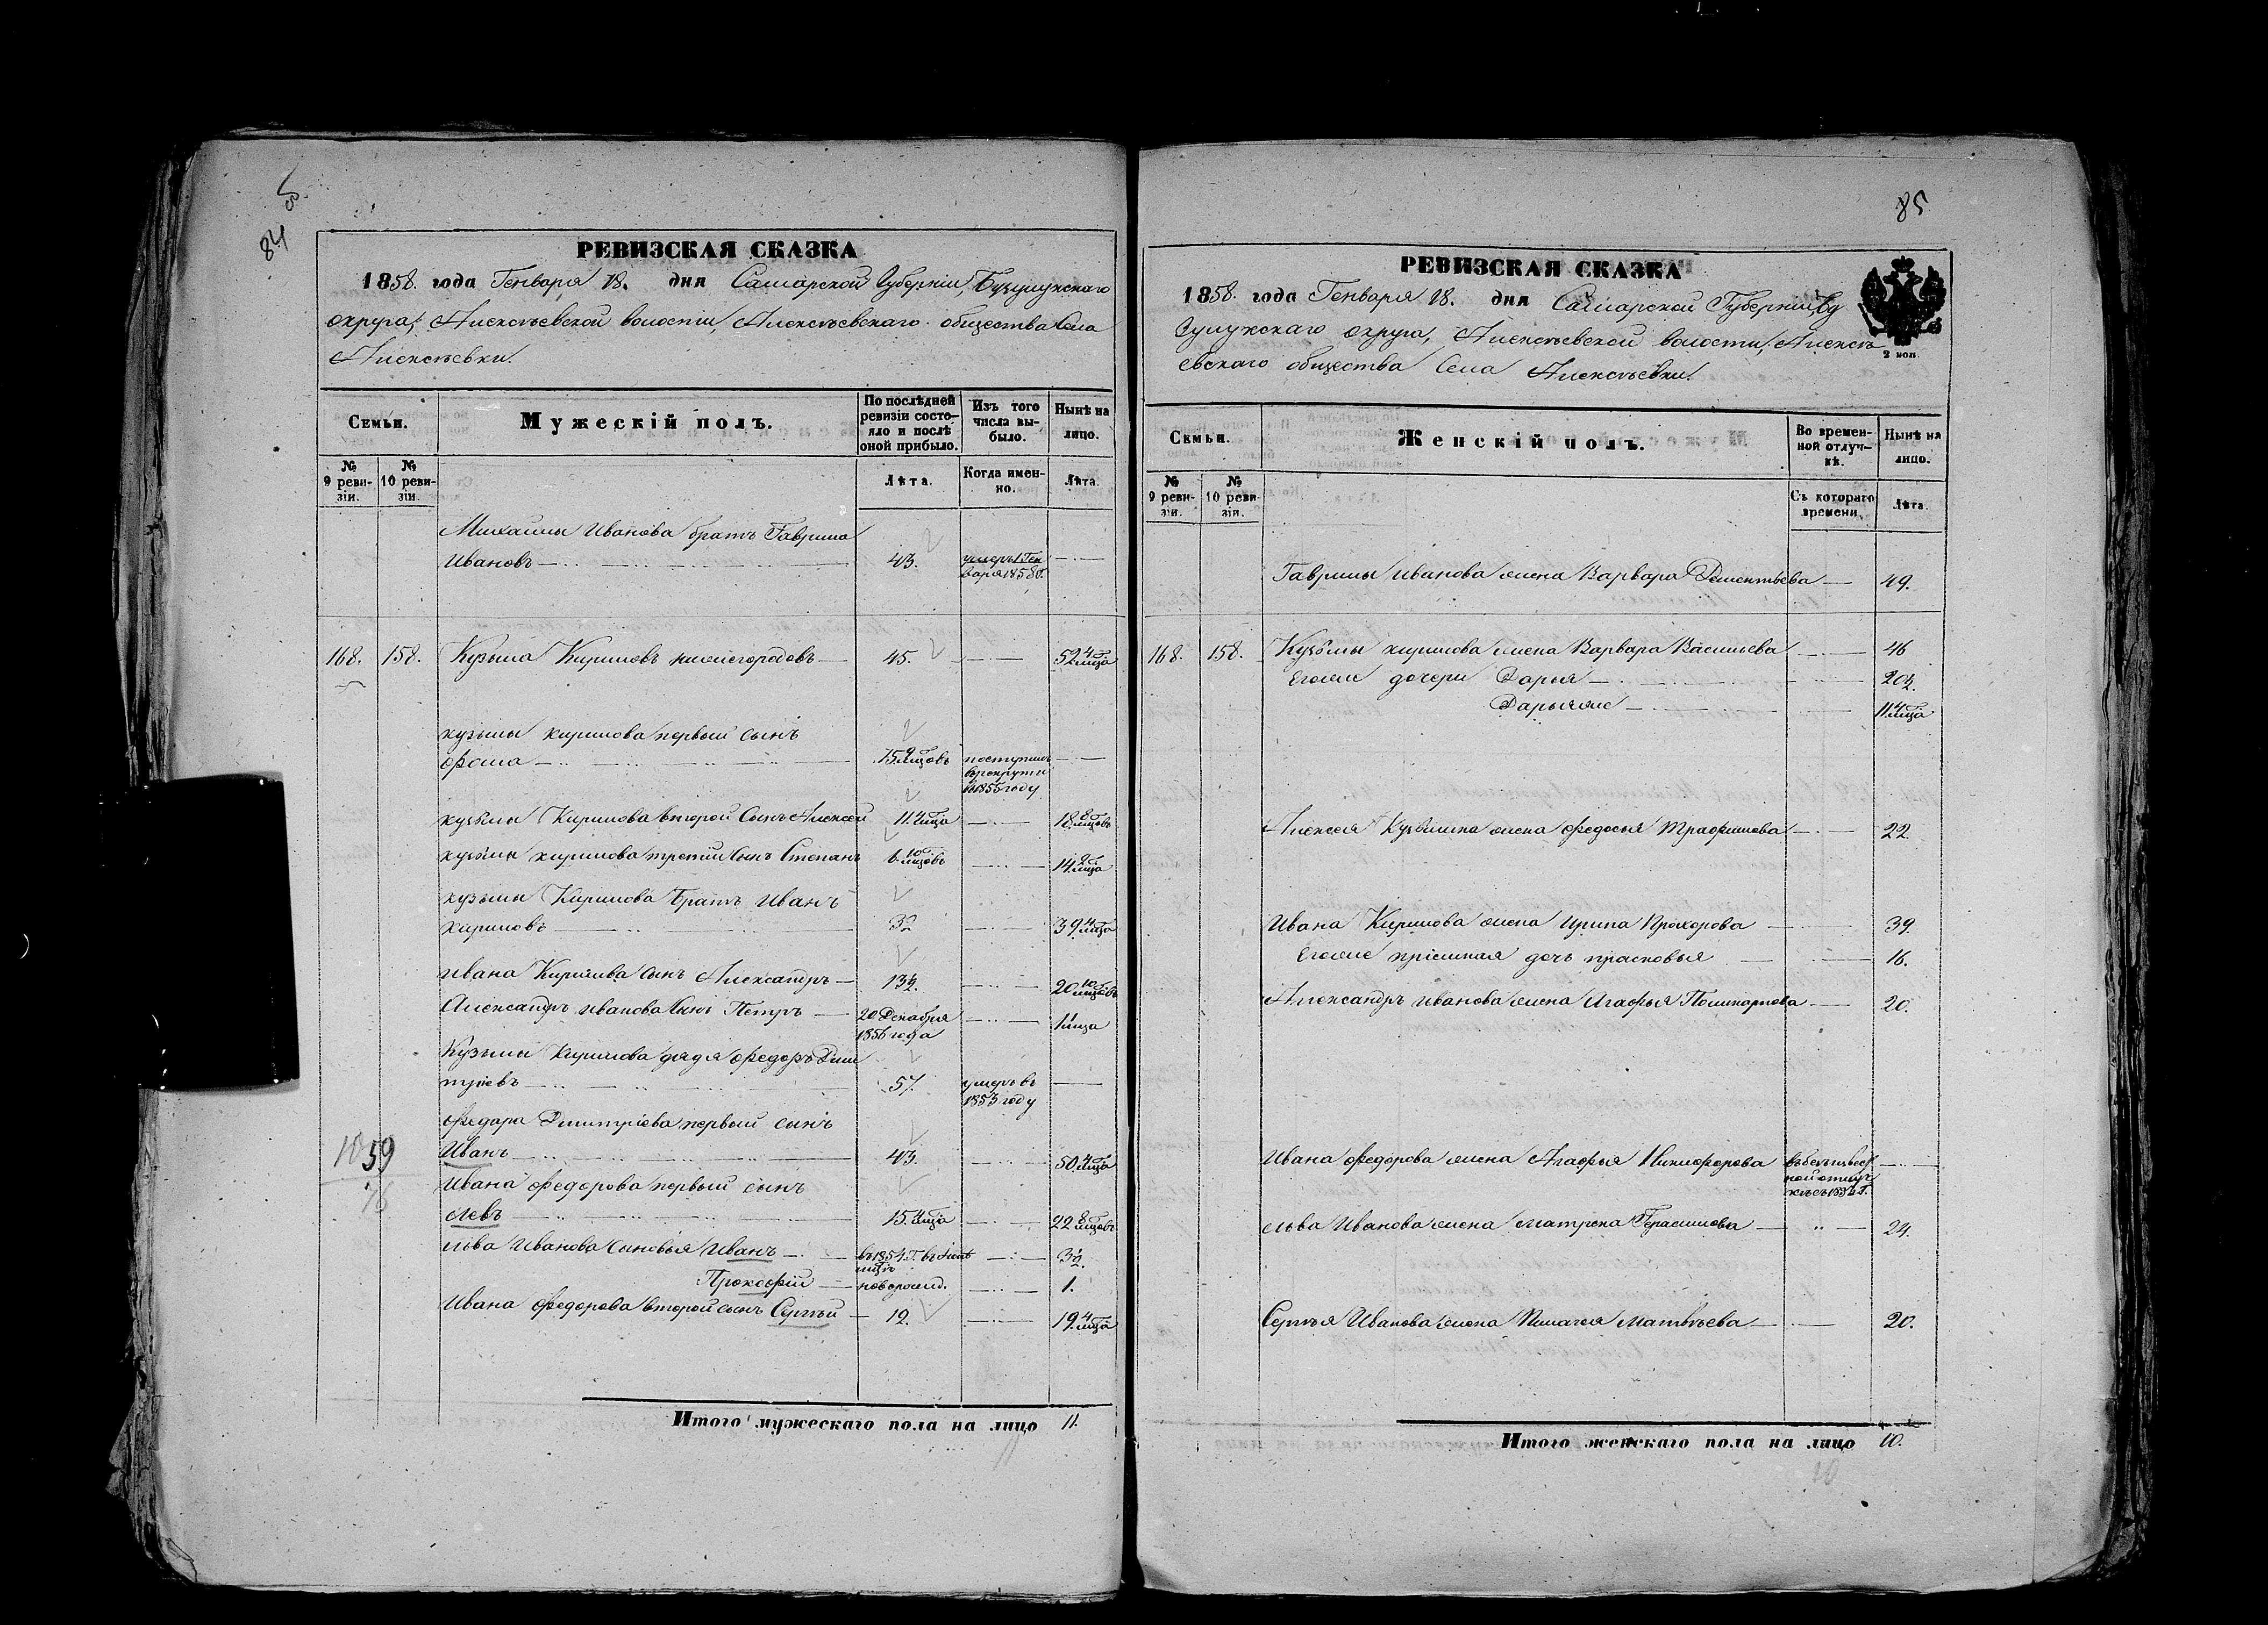 84
РЕВИЗСКАЯ СКАЗКА
1858. года Генваря 18. дня Самарской Губерніи, Бузулукскаго
округа, Алексѣевской волости, Алексѣевскаго общества Села
Алексѣевки.
Семьи.
Мужескій полъ.
По послѣдней ревизіи состо-
яло и послѣ оной прибыло.
Изъ того числа вы-
было.
Нынѣ на лицо.
№ 9 реви-
зіи.
№ 10 реви-
зіи.
Лѣта.
Когда имен-
но.
Лѣта.
Михаилы Иванова братъ Гаврила
Ивановъ 43. умеръ 1 Ген
варя 1858 г.
168. 158. Кузьма Кириловъ нижегородовъ 45. 52 4 мца
кузьмы кирилова первый сынъ
фома 15. 9 мцовъ поступилъ
въ рекруты
в 1855 году
кузьмы Кирилова второй Сынъ Алексей 11. 4 мца 18. 8 мцовъ
кузьмы кирилова третій Сынъ Степанъ 6. 10 мцовъ 14. 2 мца
кузьмы Кирилова братъ Иванъ
кириловъ 32 39 4 мца
Ивана Кирилова Сынъ Александръ 13½. 20 10 мцовъ
Александръ иванова Сынъ Петръ 20 Декабря
1856 года 1 1 мца
Кузьмы Кирилова дядя федоръ Дми
тріевъ 57. умеръ въ
1853 году
федора Дмитріева первый сынъ
Иванъ 43. 50. 4 мца
1059
16
Ивана федорова первый сынъ
Левъ 15. 4 мца 22 8 мцовъ
Льва Иванова Сыновья Иванъ в 1854 г. въ
мцѣ 3½.
Прокофій новорожд. 1.
Ивана федорова второй сынъ Сергѣй 12. 19. 4 мца
Итого мужескаго пола на лицо 11.
85
РЕВИЗСКАЯ СКАЗКА
1858. года Генваря 18. дня Самарской Губерніи, Бу
зулукскаго округа, Алексѣевской волости, Алексѣ
евскаго общества Села Алексѣевки.
2 коп.
Семьи.
Женскій полъ.
Во времен-
ной отлуч-
кѣ.
Нынѣ на лицо.
№ 9 реви-
зіи.
№ 10 реви-
зіи.
Съ котораго времени.
Лѣта.
Гаврилы Иванова жена Варвара Дементьева 49.
168. 158. Кузьмы кирилова жена Варвара Васильева 46
Егоже дочери Дарья 20½.
Дарья же 11. 4 мца
Алексея Кузьмина жена федосья Трафимова 22.
Ивана Кирилова жена Ирина Прохорова 39.
Егоже пріемная дочь прасковья 16.
Александръ иванова жена Агафья Поликарпова 20.
Ивана федорова жена Агафья Никифорова въ безъизвест
ной отлуч
кѣ съ г.
Льва Иванова жена Матрена Герасимова 24.
Сергѣя Иванова жена Пелагея Матвѣева 20.
Итого женскаго пола на лицо 10.
10